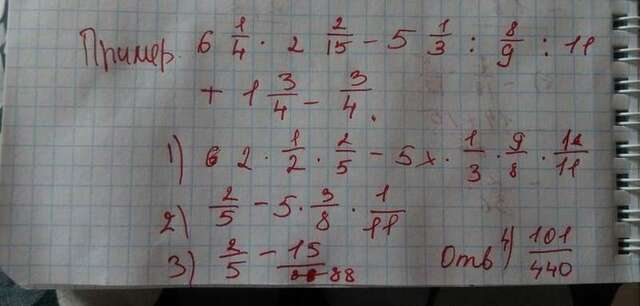 Пример. 6 1/4 · 2 2/15 − 5 1/3 : 8/9 : 11
+ 1 3/4 − 3/4.
1) 6 2 · 1/2 · 2/5 − 5 x · 1/3 · 9/8 · 1/11
2) 2/5 − 5 · 3/8 · 1/11
3) 2/5 − 15/88
Отв 4) 101/440